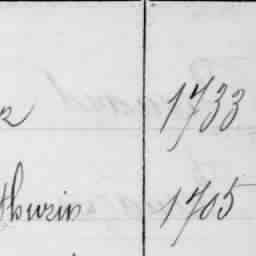 1733
thurin 1705